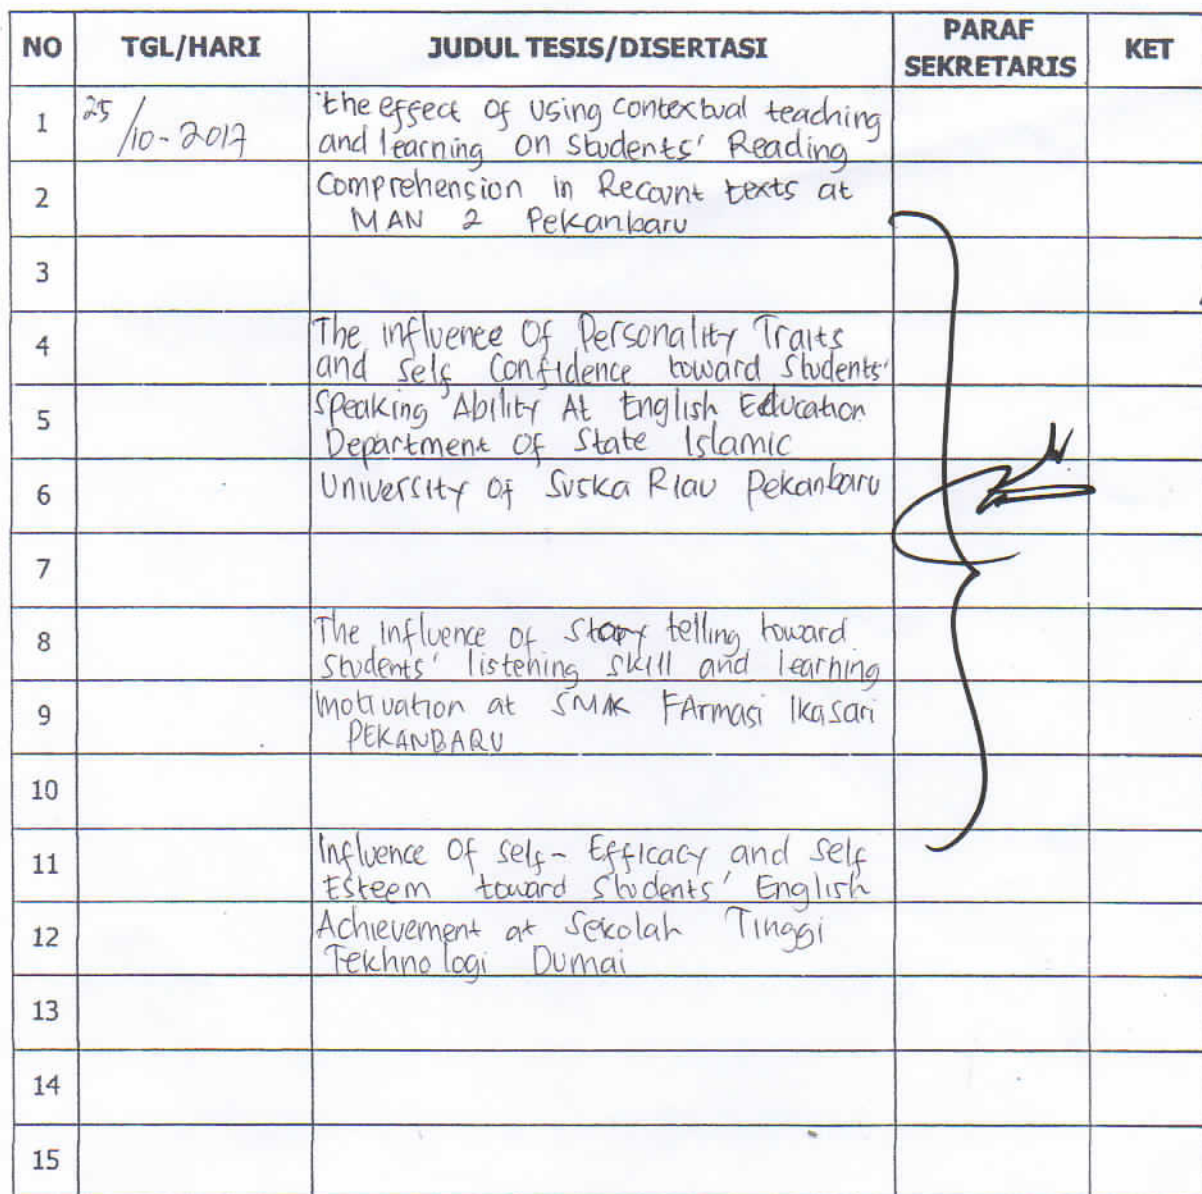 NO TGL/HARI JUDUL TESIS/DISERTASI PARAF SEKRETARIS KET
1 25/10-2017 the effect of using contextual teaching
and learning on students' Reading
2 Comprehension in Recount texts at
MAN 2 Pekanbaru
3
4 The influence Of Personality Traits
and Self Confidence toward Students'
5 Speaking Ability At English Education
Department Of State Islamic
6 University of Suska Riau Pekanbaru
7
8 The influence of Story telling toward
Students' listening Skill and learning
9 motivation at SMAK FArmasi Ikasari
PEKANBARU
10
11 Influence Of self-Efficacy and Self
Esteem toward Students' English
12 Achievement at Sekolah Tinggi
Tekhnologi Dumai
13
14
15